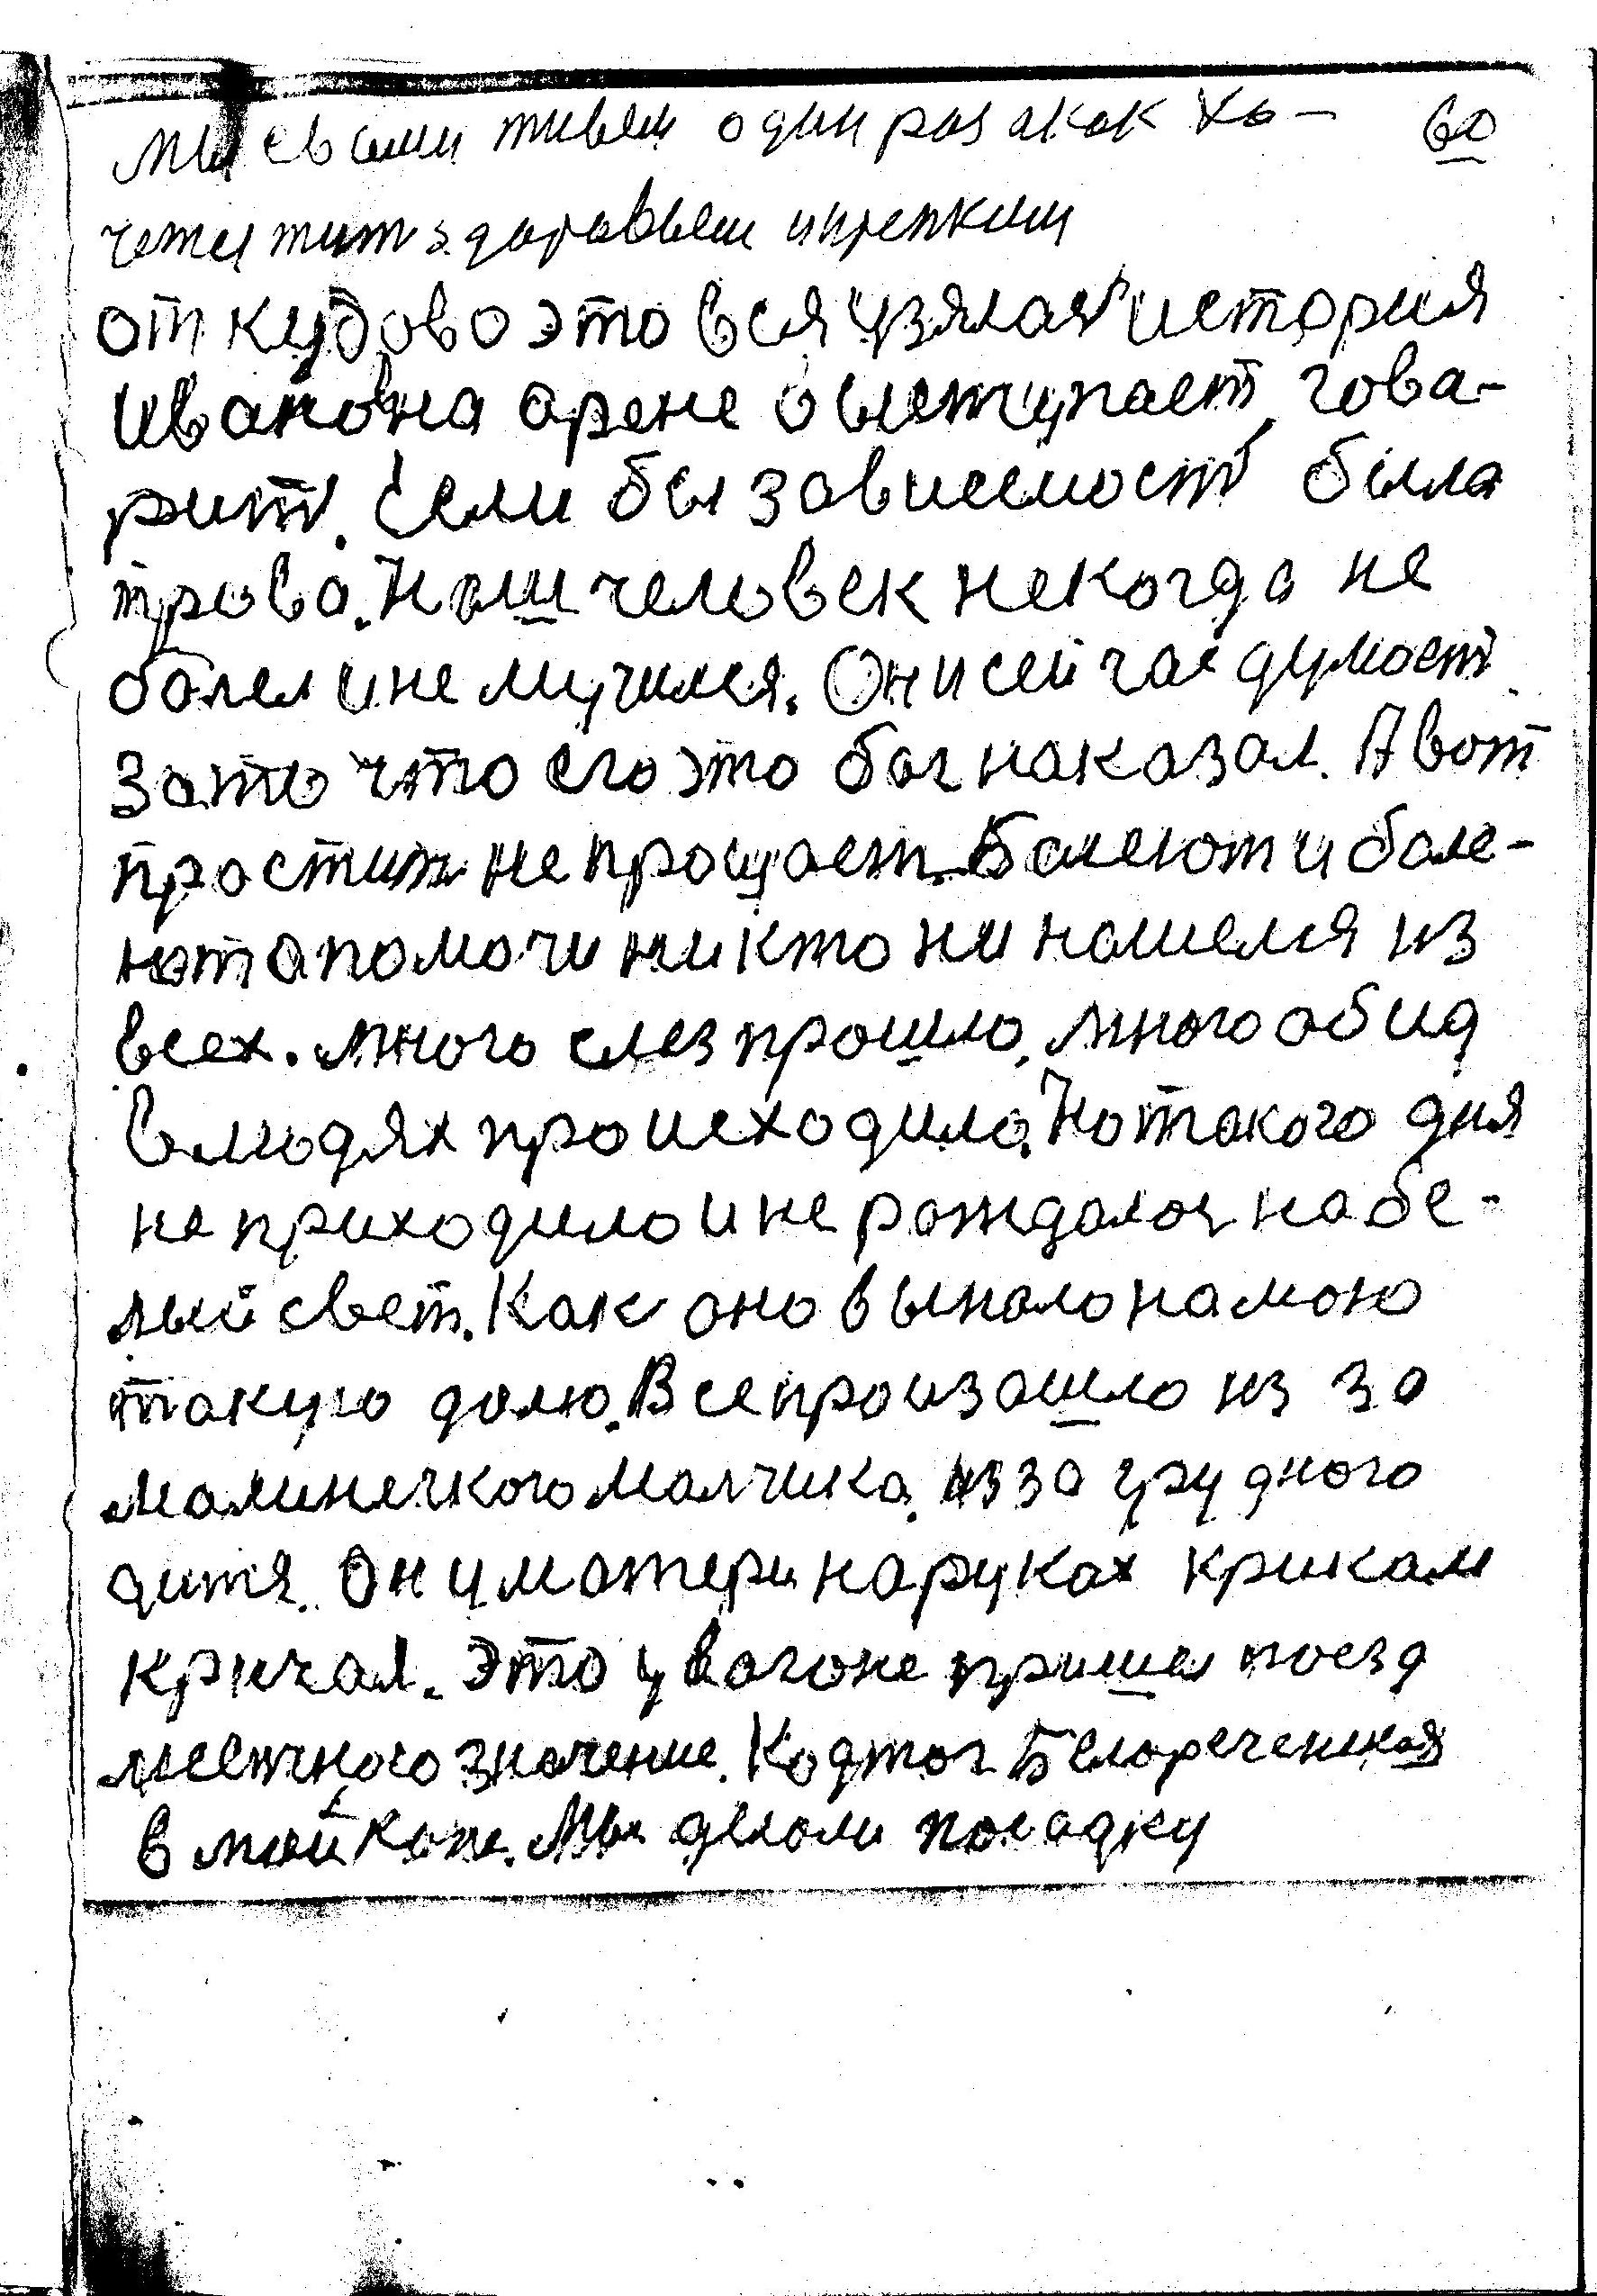 мы свами живем один раз а как хо- 60
чется жит здоровыем и крепким
от кудово это вся узялая история
Иванов на арене выступает, гова-
рит. Если бы зависемост была
трова. Наш человек некогда не
болел и не мучился. Он и сейчас думает
зато что его это бог наказал. А вот
простит не прощает. Болеют и боле-
ют а помочи никто ни нашелся из
всех. Много слез прошло, много обид
в людях происходило. Но такого дня
не приходило и не рождалось на бе-
лый свет. Как оно выпало на мою
такую долю. Все произошло из за
малинечкого малчика. из за грудного
дитя. Он у матери на руках криком
кричал. Это у вагоне пришел поезд
местного значение. Кодтог Белореченская
в майкопе. Мы делали посадку